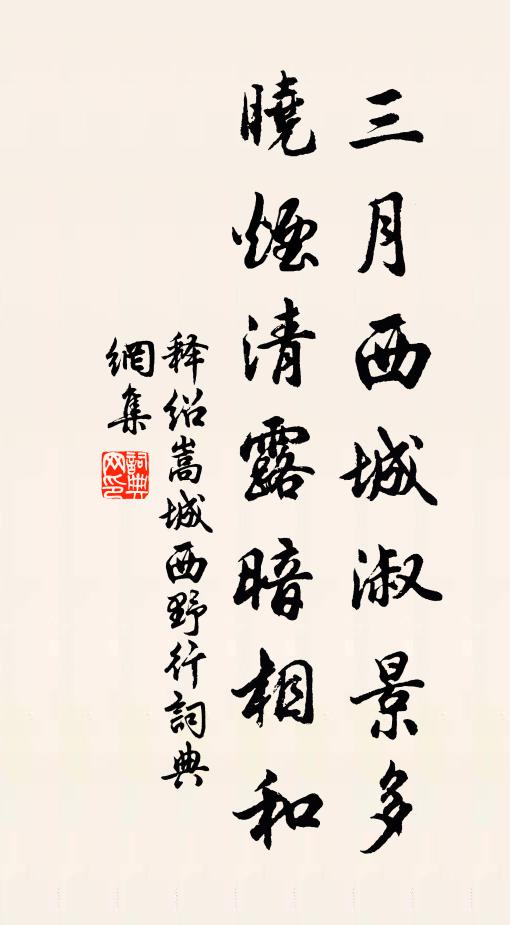 三月西城淑景多
曉煙清露暗相和
释绍嵩城西野行詞典
網集
詞典
网印